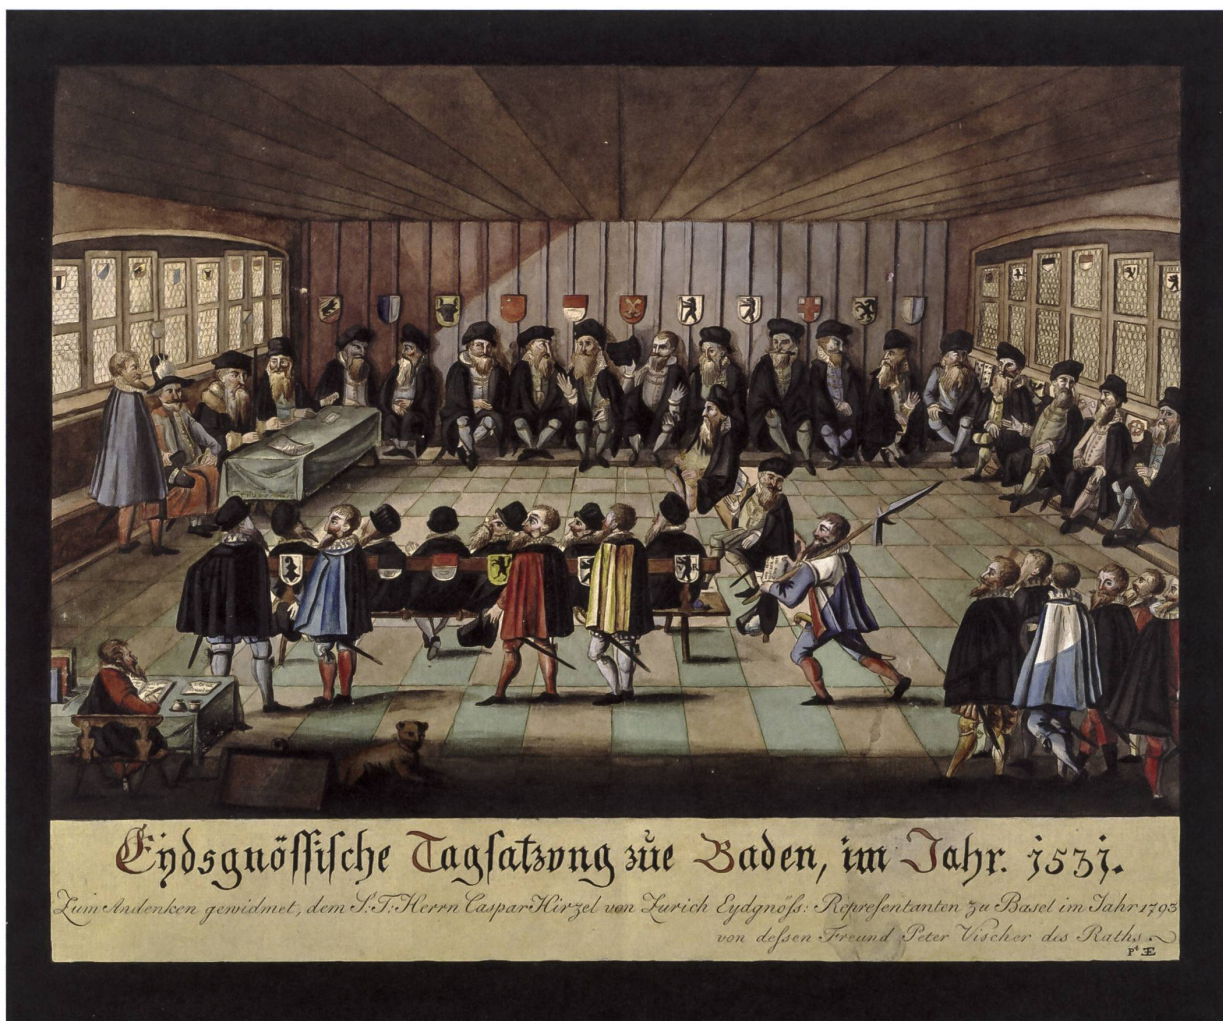 Eydsgnöſſiſche Tagſatzvng zůe Baden, im Jahr. 1531.
Zum Andenken gewidmet, dem S: T: Herrn Caspar Hirzel von Zurich Eydgnöſs: Repreſentanten zu Basel im Jahr 1793
von deſsen Freund Peter Vischer des Raths.